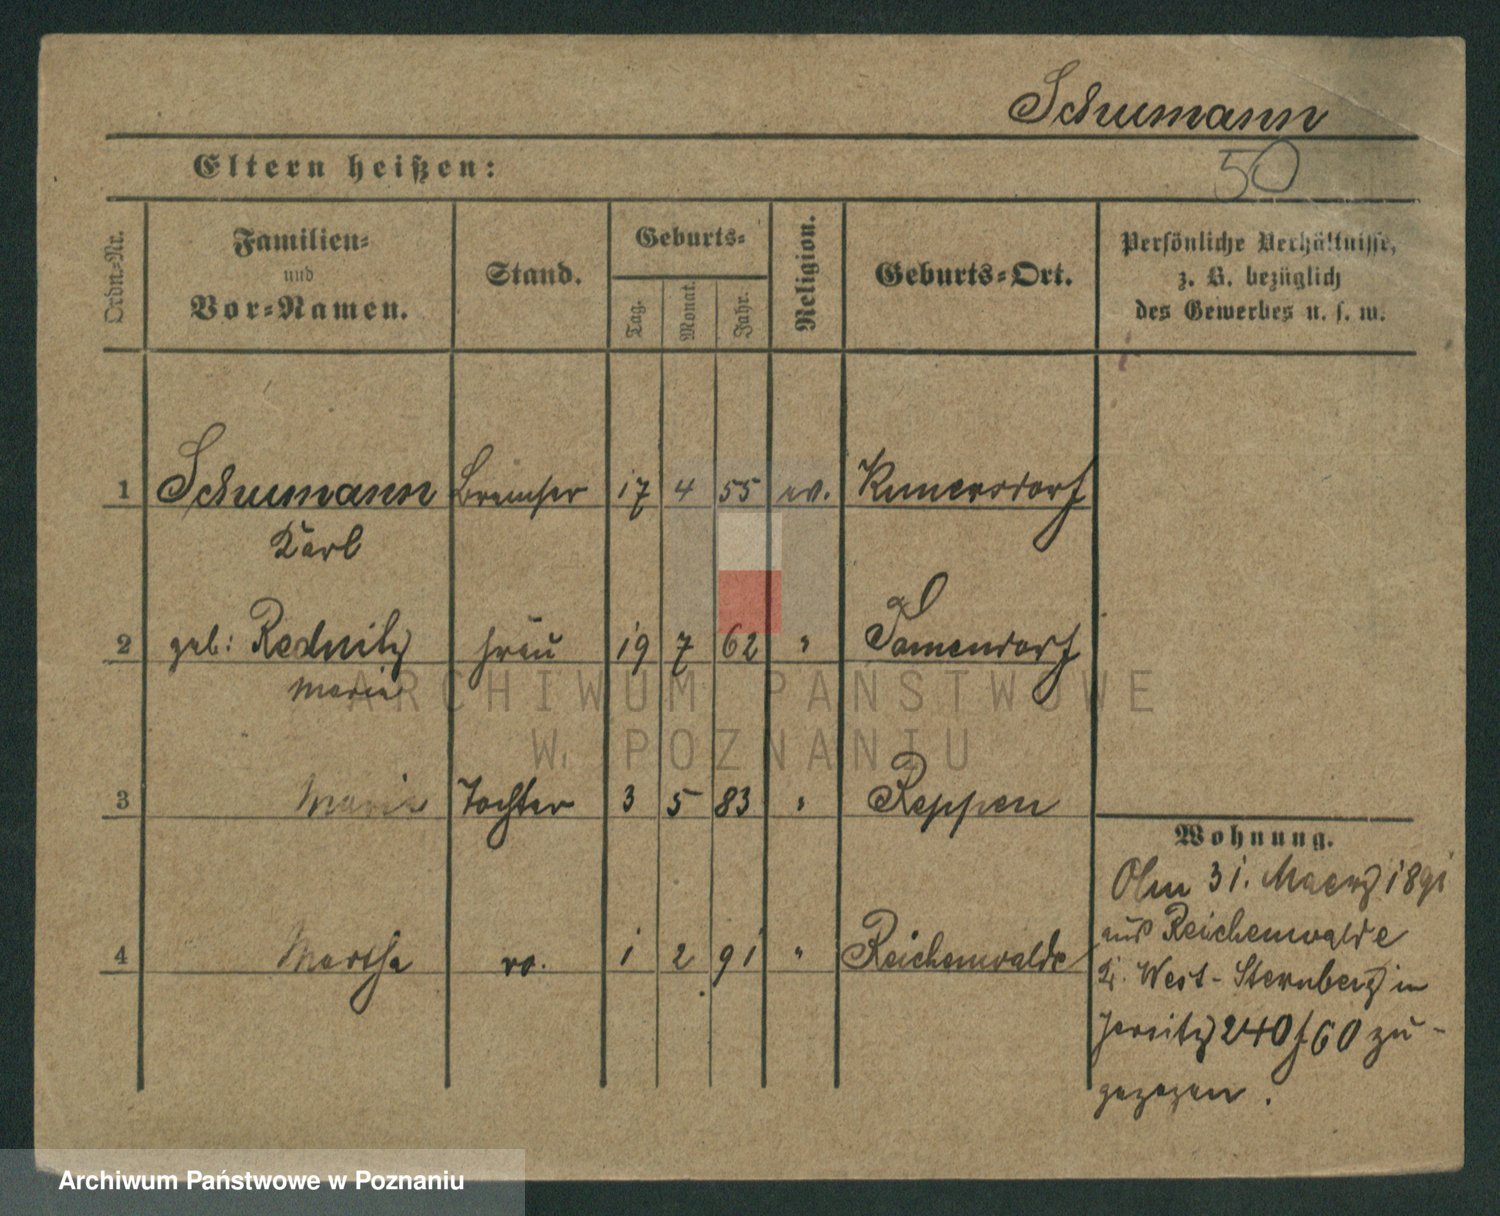 Schumann
50
Eltern heißen:
Ordn.=Nr.
Familien=
und
Vor=Namen.
Stand.
Geburts=
Tag.
Monat.
Jahr.
Religion.
Geburts=Ort.
Persönliche Verhältnisse,
z. B. bezüglich
des Gewerbes u. s. w.
1 Schumann Bremser 17 4 55 ev. Kunersdorf
Karl
2 geb: Rednitz Frau 19 7 62 " Tamendorf
Marie
ARCHIWUM PAŃSTWOWE
W POZNANIU
3 Marie Tochter 3 5 83 " Reppen
4 Martha do. 1 2 91 " Reichenwalde
Wohnung.
31. Maerz 1891
aus Reichenwalde
Kr. West-Sternberg in
Jersitz 240/60 zu-
gezogen.
Archiwum Państwowe w Poznaniu